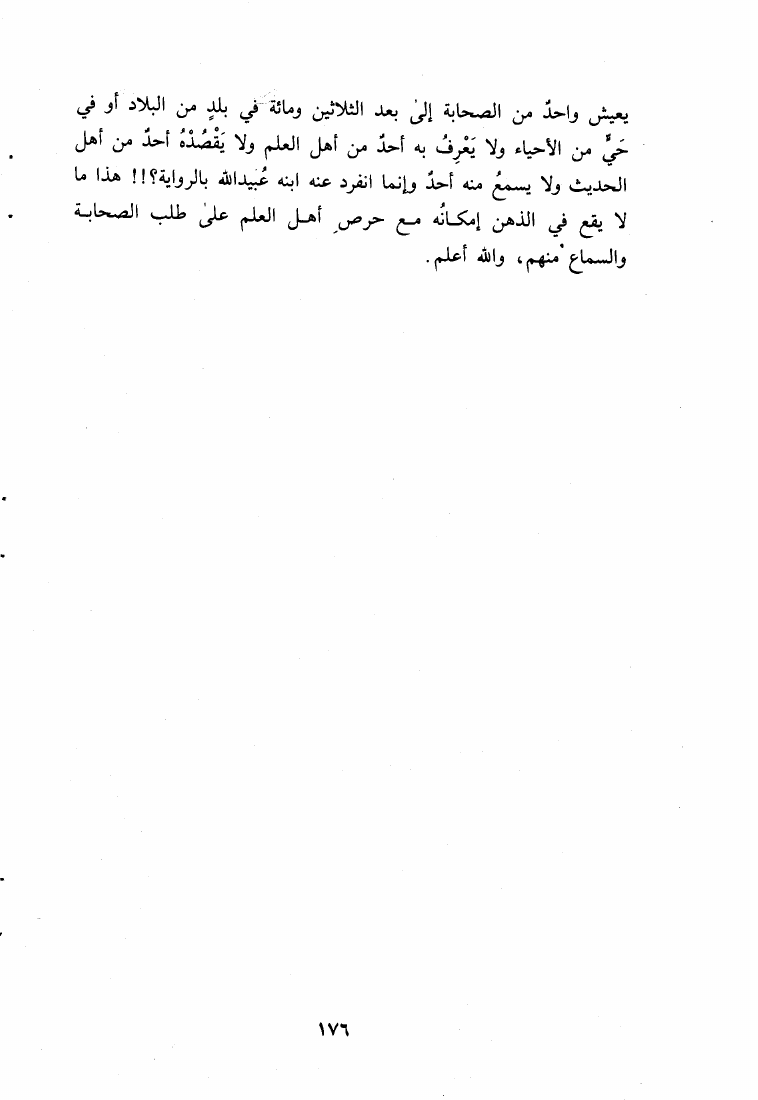 يعيش واحدٌ من الصحابة إلىٰ بعد الثلاثين ومائة في بلدٍ من البلاد أو في
حَيٍّ من الأحياء ولا يَعْرِفُ به أحدٌ من أهل العلم ولا يَقْصُدْهُ أحدٌ من أهل
الحديث ولا يسمعُ منه أحدٌ وإنما انفرد عنه ابنه عُبيدالله بالرواية؟!! هذا ما
لا يقع في الذهن إمكانُه مع حرصِ أهل العلم علىٰ طلب الصحابة
والسماع منهم، والله أعلم.
١٧٦